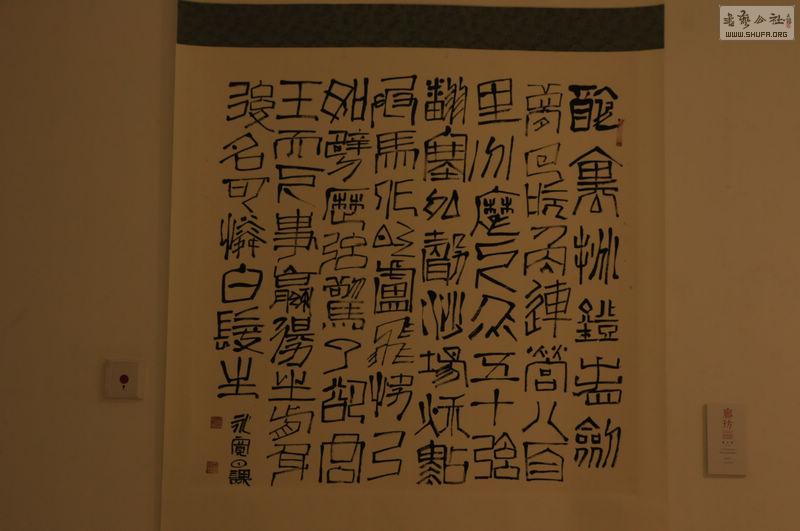 書藝公社
WWW.SHUFA.ORG
醉裏挑鐙看劍
夢回吹角連營八百
里分麾下炙五十弦
翻塞外聲沙場秋點
兵馬作的盧飛快弓
如劈歷弦驚了卻君
王天下事贏得生前身
後名可憐白髮生
永寬日課
廊坊